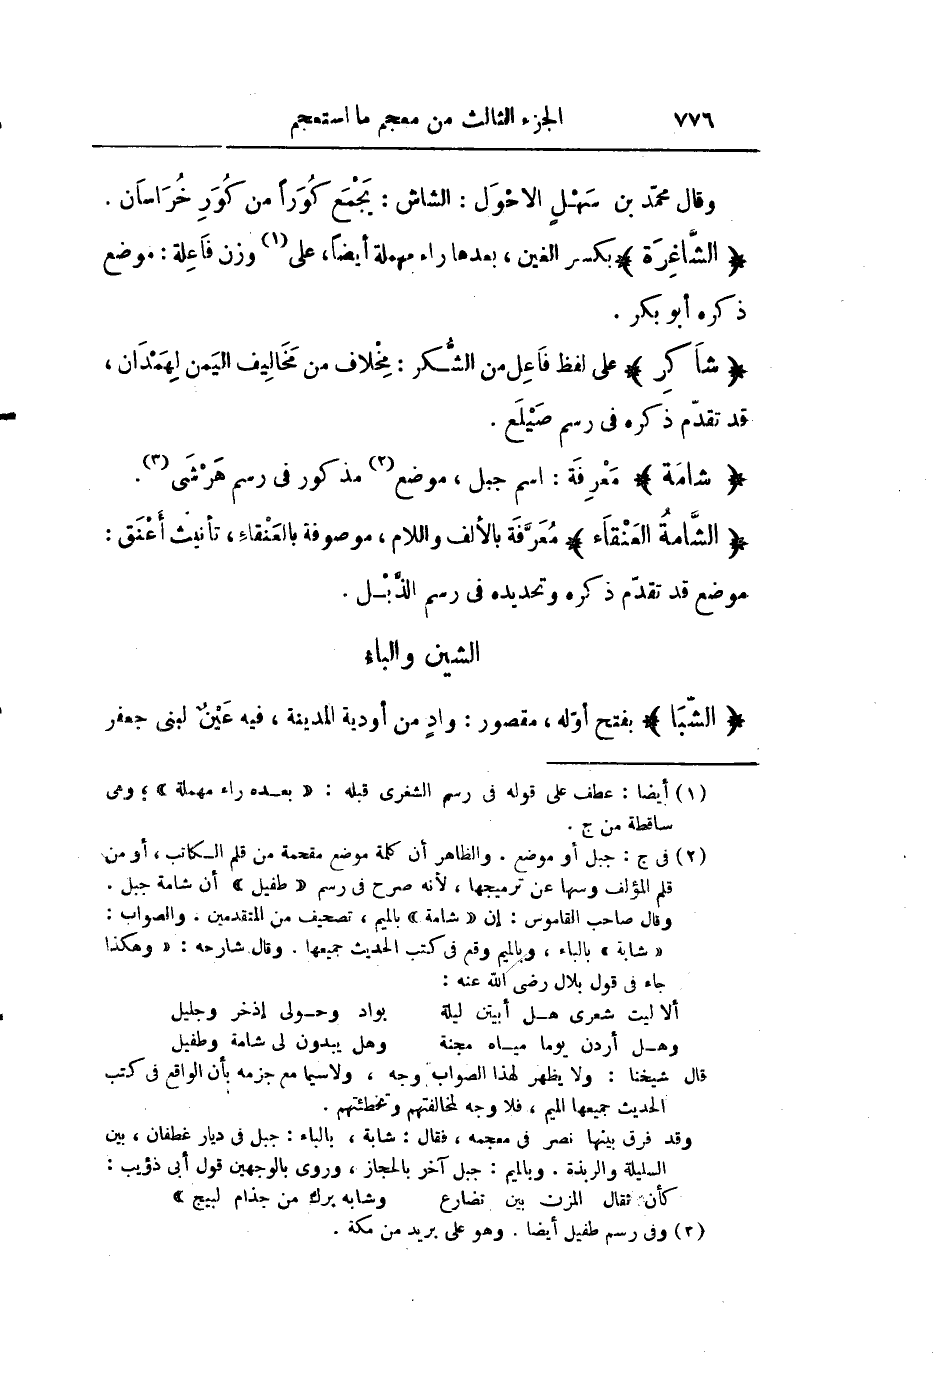 ٧٧٦ الجزء الثالث من معجم ما استعجم
وقال محمّد بن سَهْلٍ الاحْوَل : الشاش : يَجْمَع كُوَراً من كُوَرِ خُرَاسَان .
﴿ الشَّاغِرَة ﴾ بكسر الغين ، بعدها راء مهملة أيضاً، على(١) وزن فَاعِلة : موضع
ذكره أبو بكر .
﴿ شاَكِر ﴾ على لفظ فَاعِل من الشُّكر : مِخْلاف من مَخَالِيف اليَمن لِهَمْدَان ،
قد تقدّم ذكره فى رسم صَيْلَع .
﴿ شامَة ﴾ مَعْرِفَة : اسم جبل ، موضع(٢) مذكور فى رسم هَرْشَى(٣) .
﴿ الشَّامةُ العَنْقاَء ﴾ مُعَرَّفَة بالألف واللام ، موصوفة بالعَنْقاءِ ، تأنيث أَعْنَق :
موضع قد تقدّم ذكره وتحديده فى رسم الذَّبْل .
الشين والباء
﴿ الشّبَا ﴾ بفتح أوّله ، مقصور : وادٍ من أودية المدينة ، فيه عَيْنٌ لبنى جعفر
(١) أيضا : عطف على قوله فى رسم الشغرى قبله : « بعده راء مهملة » ؛ وهى
ساقطة من ج .
(٢) فى ج : جبل أو موضع . والظاهر أن كلمة موضع مقحمة من قلم الكاتب ، أو من
قلم المؤلف وسها عن ترميجها ، لأنه صرح فى رسم « طفيل » أن شامة جبل .
وقال صاحب القاموس : إن « شامة » بالميم ، تصحيف من المتقدمين . والصواب :
« شابة » بالباء ، وبالميم وقع فى كتب الحديث جميعها . وقال شارحه : « وهكذا
جاء فى قول بلال رضى الله عنه :
ألا ليت شعرى هل أبيتن ليلة بواد وحولى إذخر وجليل
وهل أردن يوما مياه مجنة وهل يبدون لى شامة وطفيل
قال شيخنا : ولا يظهر لهذا الصواب وجه ، ولاسيما مع جزمه بأن الواقع فى كتب
الحديث جميعها الميم ، فلا وجه لمخالفتهم وتخطئتهم .
وقد فرق بينها نصر فى معجمه ، فقال : شابة ، بالباء : جبل فى ديار غطفان ، بين
السليلة والربذة . وبالميم : جبل آخر بالحجاز ، وروى بالوجهين قول أبى ذؤيب :
كأن ثقال المزن بين تضارع وشابه برك من جذام لبيج »
(٣) وفى رسم طفيل أيضا . وهو على بريد من مكة .